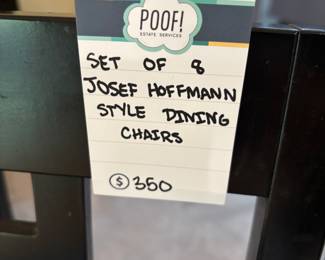 POOF!
ESTATE SERVICES
SET OF 8
JOSEF HOFFMANN
STYLE DINING
CHAIRS
$ 350